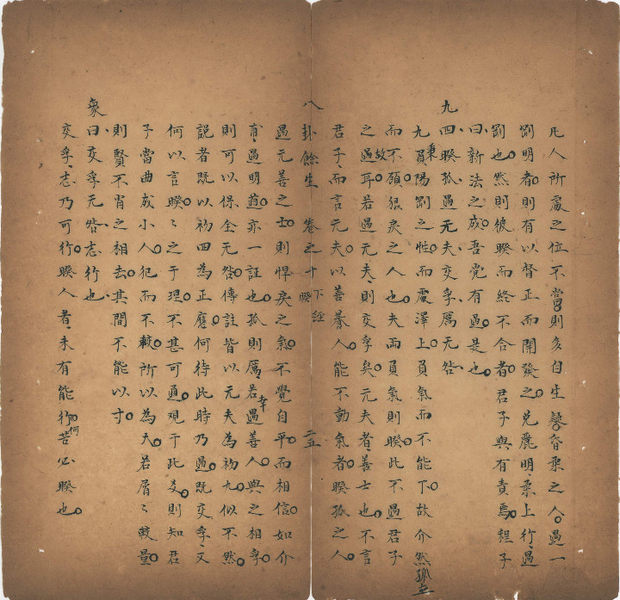 凡人所處之位不當則多自生昏柔之人遇一
剛明者則有以督正而開發之兌麗明柔上行遇
剛也然則彼睽而終不合者君子與有責焉程子
曰新法之成吾黨有過是也
九四睽孤遇元夫交孚厲无咎
九秉陽剛之性而處澤上負氣而不能下故介然孤立
而不顧很戾之人也夫兩負氣則睽此不遇君子
之故耳若遇元夫則交孚矣元夫者善士也不言
君子而言元夫以善養人能不動氣者睽孤之人
八卦餘生 卷之十 下經 睽 二五
遇元善之士則悍戾之氣不覺自平而相信如介
遇明道亦一証也孤則厲若幸遇善人與之相孚
則可以保全无咎傳註皆以元夫為初九似不然
說者既以初四為正應何待此時乃遇既交孚又
何以言睽〻之于理不甚可通觀于此爻則知君
子當曲成小人犯而不較所以為大若屑〻較量
則賢不肖之相去其間不能以寸
象曰交孚无咎志行也
交孚志乃可行睽人者未有能行何苦必睽也